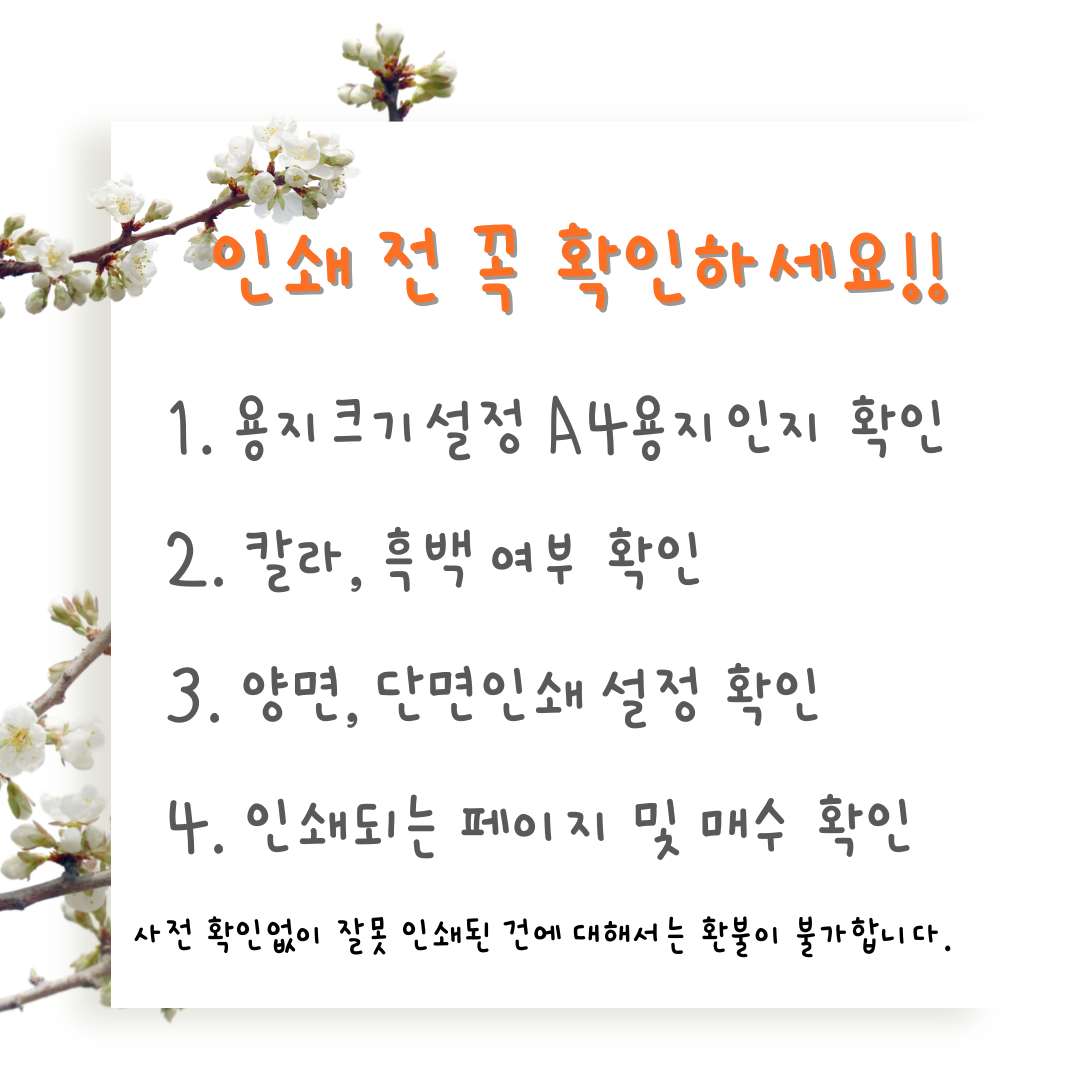 인쇄 전 꼭 확인하세요!!
1. 용지크기설정 A4용지인지 확인
2. 칼라, 흑백 여부 확인
3. 양면, 단면인쇄 설정 확인
4. 인쇄되는 페이지 및 매수 확인
사전 확인없이 잘못 인쇄된 건에 대해서는 환불이 불가합니다.